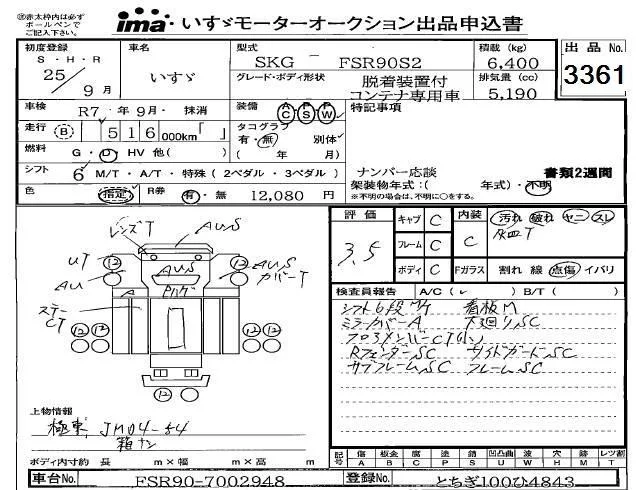 ㊟赤太枠内は必ず
ボールペンで
ご記入下さい。
ima いすゞモーターオークション出品申込書
初度登録 車名 型式 積載 (kg) 出品No.
S・H・R
25/9月 いすゞ SKG - FSR90S2 6,400
グレード・ボディ形状 排気量 (cc)
脱着装置付
コンテナ専用車 5,190
3361
車検 R7 年 9月・ 抹消 装備 AC PS PW 特記事項
走行 (B) 516 000km「 」 タコグラフ
有・無 別体
( 年 月)
燃料 G・D・HV 他( )
シフト 6 M/T・A/T・特殊(2ペダル・3ペダル) ナンバー応談 書類2週間
架装物年式:( 年式)・不明
色 指定 R券 有・無 12,080 円 ※不明の場合は、年明不明に○をする。
評価 3.5
キャブ C 内装 C 汚れ 破れ ヤニ スレ
灰皿T
フレーム C
ボディ C Fガラス 割れ 線 点傷 イバリ
検査員報告 A/C( ) B/T( )
シフト6段M/T 看板M
ミラーカバーA 下廻りSC
フロアメンバーCT
RフェンダーSC サイドガードSC
サブフレームSC フレームSC
レンズT AUS
UT 12 AUS 12 AUS
カバーT
AU
A
ステー
CT
12 12 12 12
12
上物情報
極東 JM04-54
箱ナシ
ボディ内寸約 長 m×幅 m×高 m
記号 傷 A 板金 B 腐 C 塗 P 錆 S 凹凸曲 U 波 W 穴 H 無 M レツ割 T
車台No. FSR90-7002948 登録No. とちぎ100ひ4843